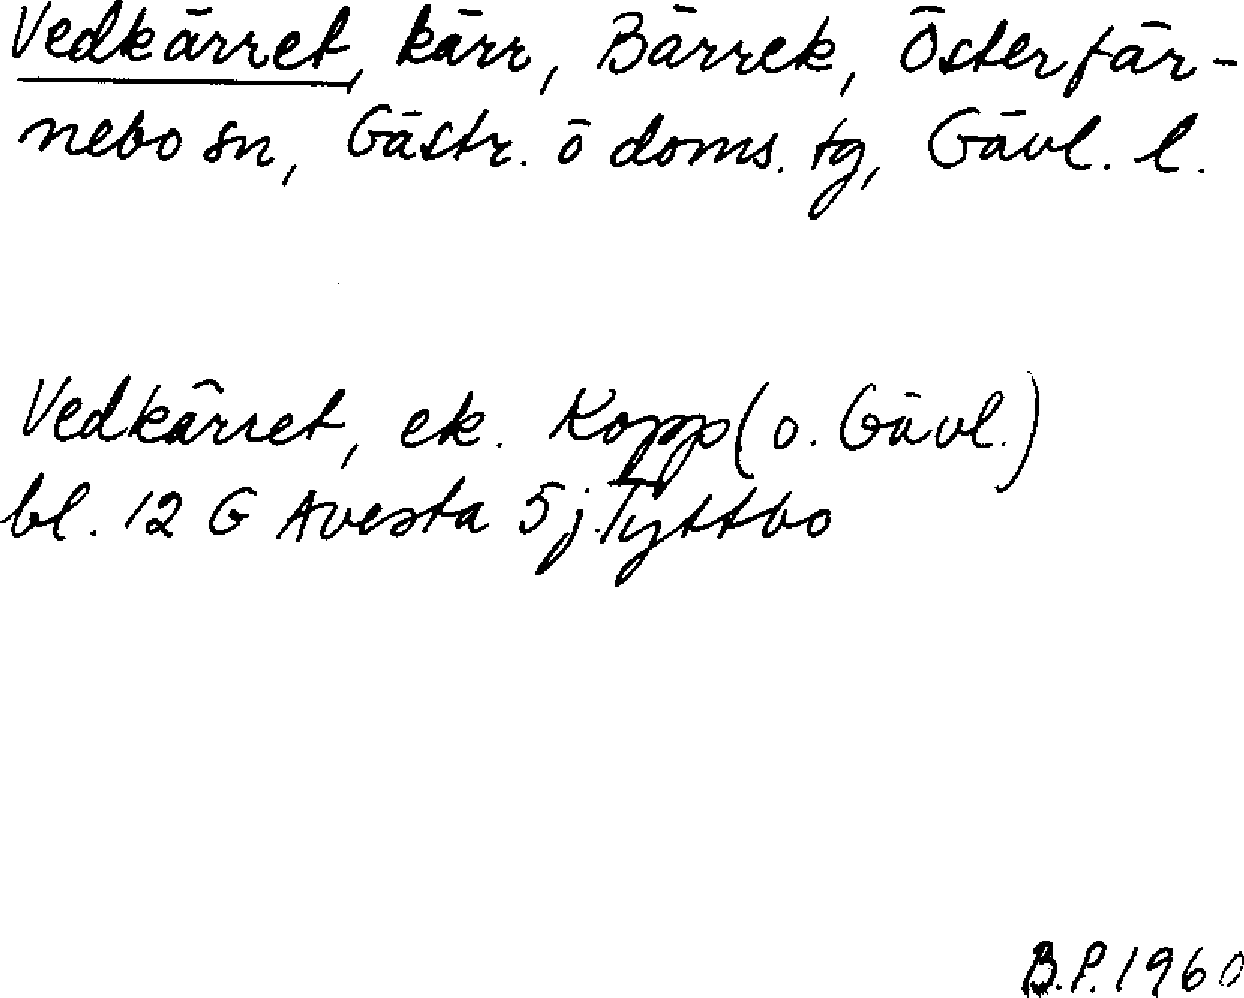 Vedkärret, kärr, Bärrek, Österfär-
nebo sn, Gästr. ö doms. tg, Gävl. l.
Vedkärret, ek. Kopp (o. Gävl.)
bl. 12 G Avesta 5 j. Tyttbo
B.P. 1960